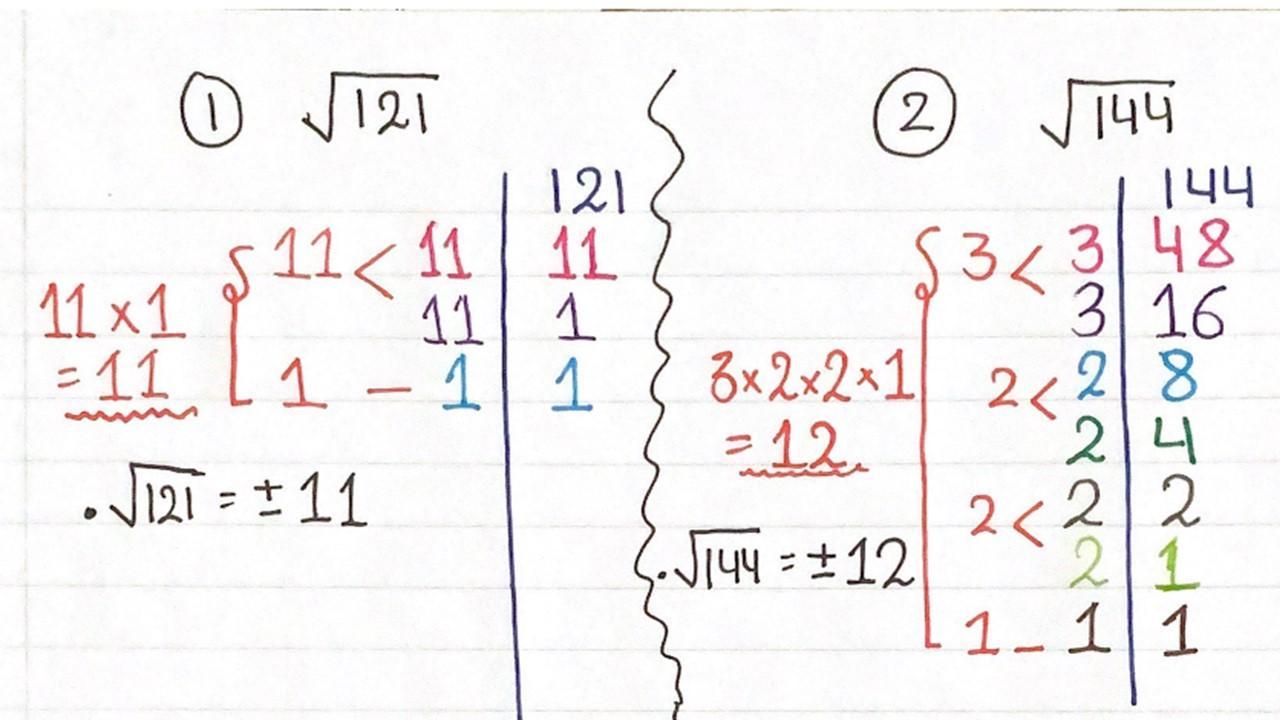 ① √121
121
11 < 11 | 11
11 | 1
11 × 1
= 11
1 – 1 | 1
. √121 = ± 11
② √144
144
3 < 3 | 48
3 | 16
2 < 2 | 8
2 | 4
3×2×2×1
= 12
2 < 2 | 2
2 | 1
1 – 1 | 1
. √144 = ± 12